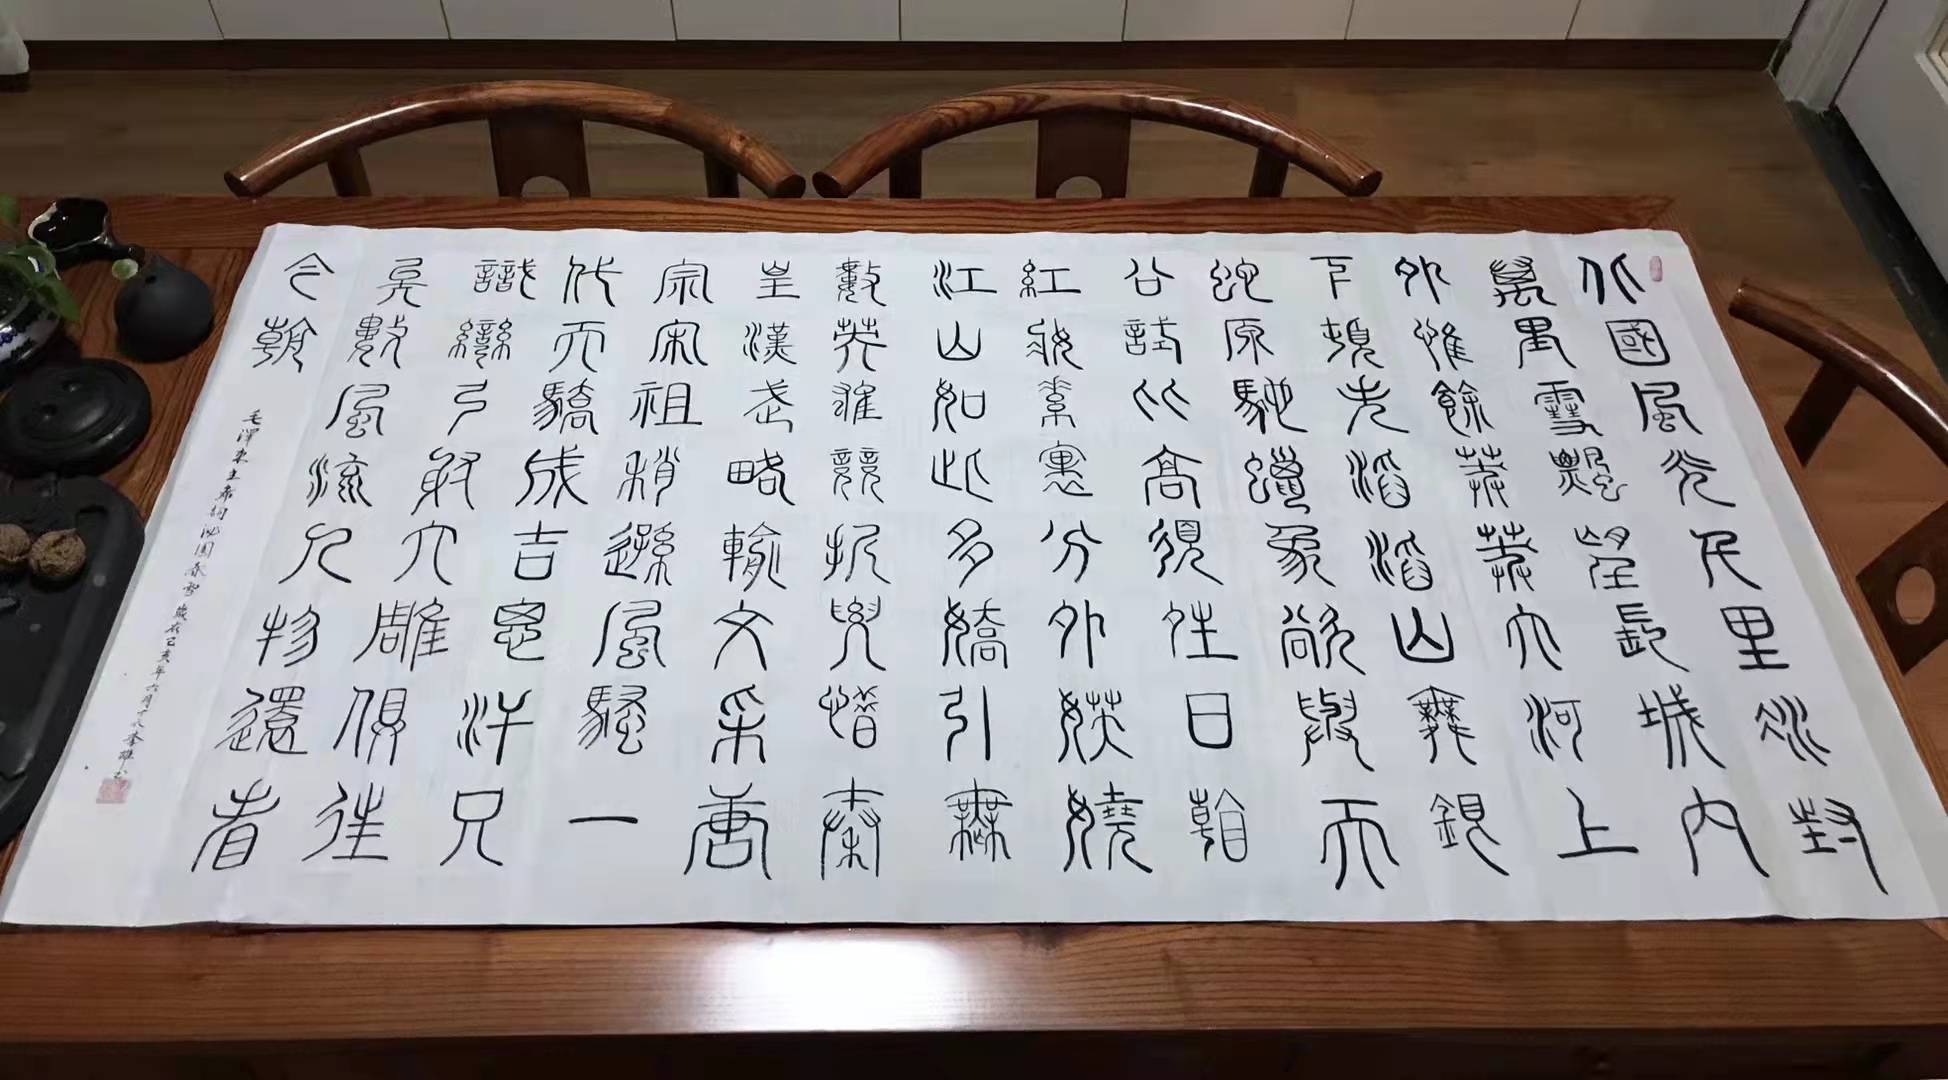 北國風光千里冰封
萬里雪飄望長城內
外惟餘莽莽大河上
下頓失滔滔山舞銀
蛇原馳蠟象欲與天
公試比高須晴日看
紅妝素裹分外妖嬈
江山如此多嬌引無
數英雄競折腰惜秦
皇漢武略輸文采唐
宗宋祖稍遜風騷一
代天驕成吉思汗只
識彎弓射大雕俱往
矣數風流人物還看
今朝
毛澤東主席詞沁園春雪 歲在己亥年六月十八